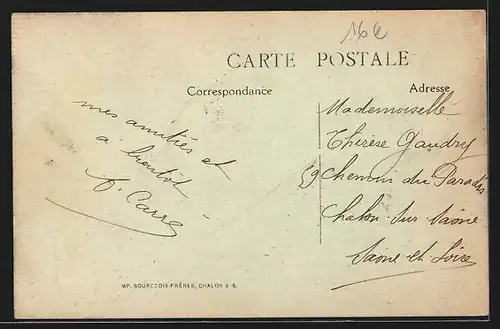 16€
CARTE POSTALE
Correspondance
Adresse
mes amitiés et
à bientôt
Carre
Mademoiselle
Thérèse Gaudry
59 Chemin du Paradis
Chalon sur Saône
Saône et Loire
IMP. BOURGEOIS FRÈRES, CHALON S-S.